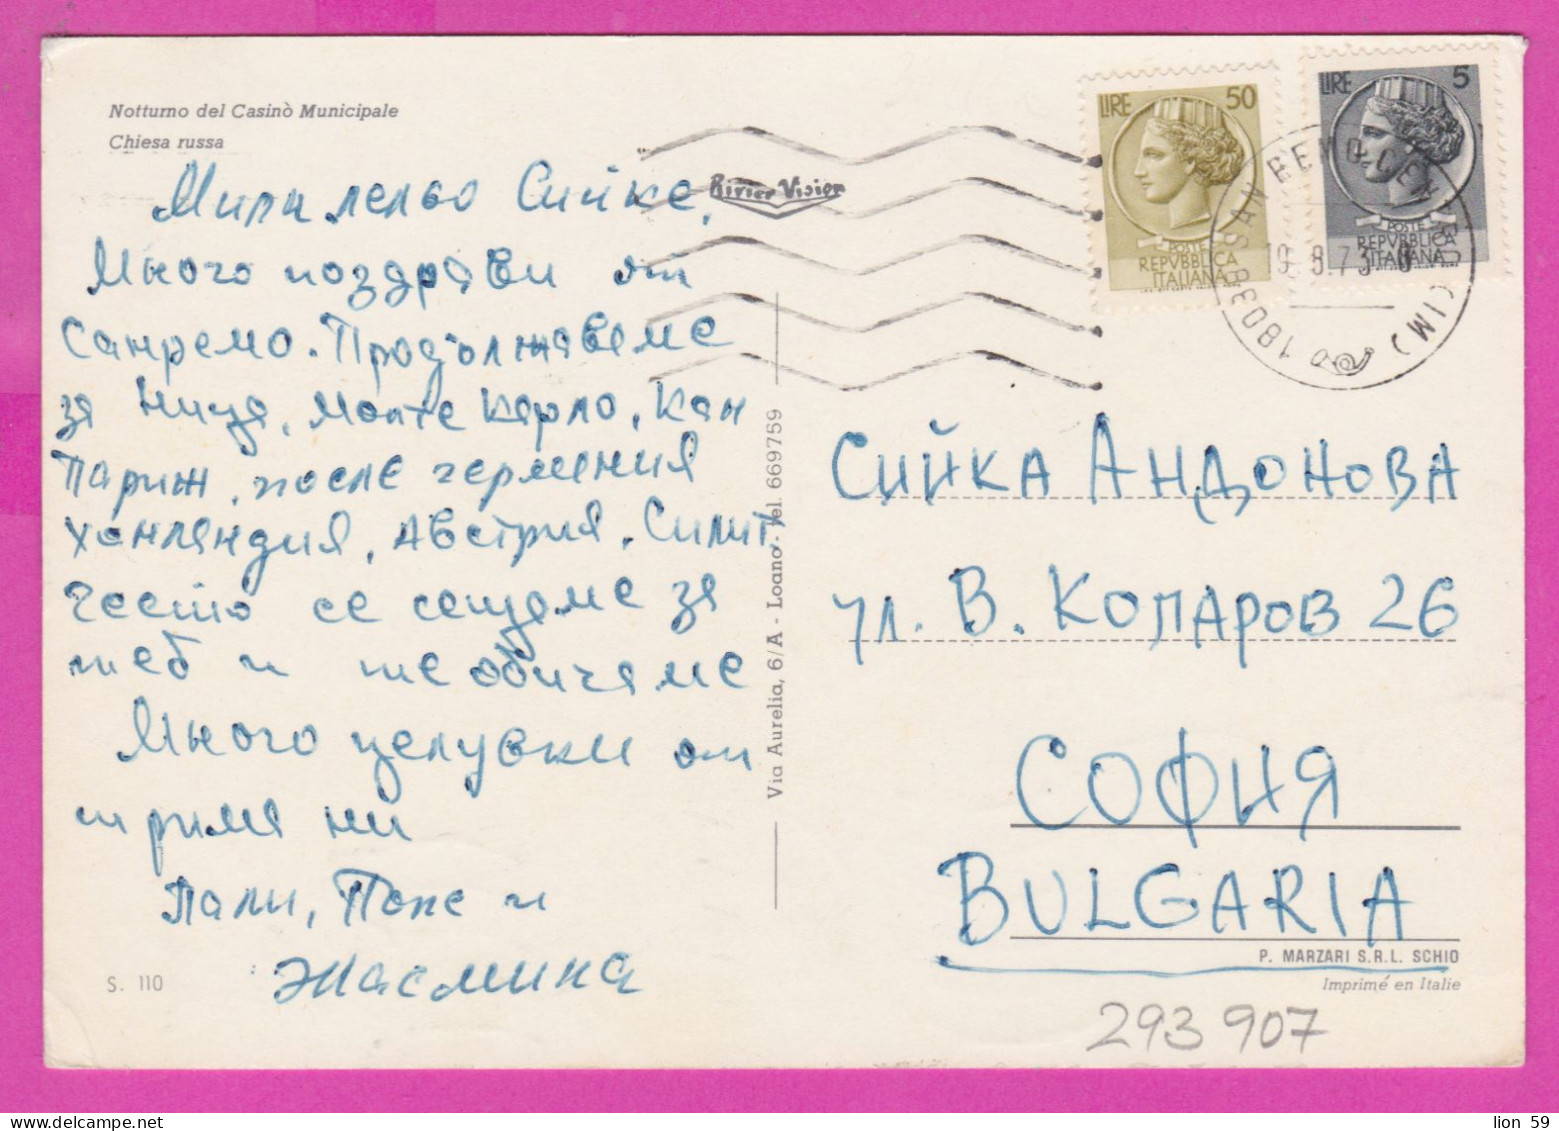 Notturno del Casinò Municipale
Chiesa russa
Мири лельо Сийке,
Много поздрави от
Санремо. Продължаваме
за Ница, Монте Карло, Кан
Париж, после Германия
Ханландия, Австрия. Силит
често се сещаме за
теб и те обичаме
Много целувки от
трима ни
Пали, Попе и
Жасмина
S. 110
Rivier Vision
Via Aurelia, 6/A - Loano - tel. 669759
LIRE 50
POSTE
REPVBBLICA
ITALIANA
LIRE 5
POSTE
REPVBBLICA
ITALIANA
18038 SAN REMO
(IM)
СИЙКА АНДОНОВА
УЛ. В. КОЛАРОВ 26
СОФИЯ
BULGARIA
P. MARZARI S.R.L. SCHIO
Imprimé en Italie
293 907
lion 59